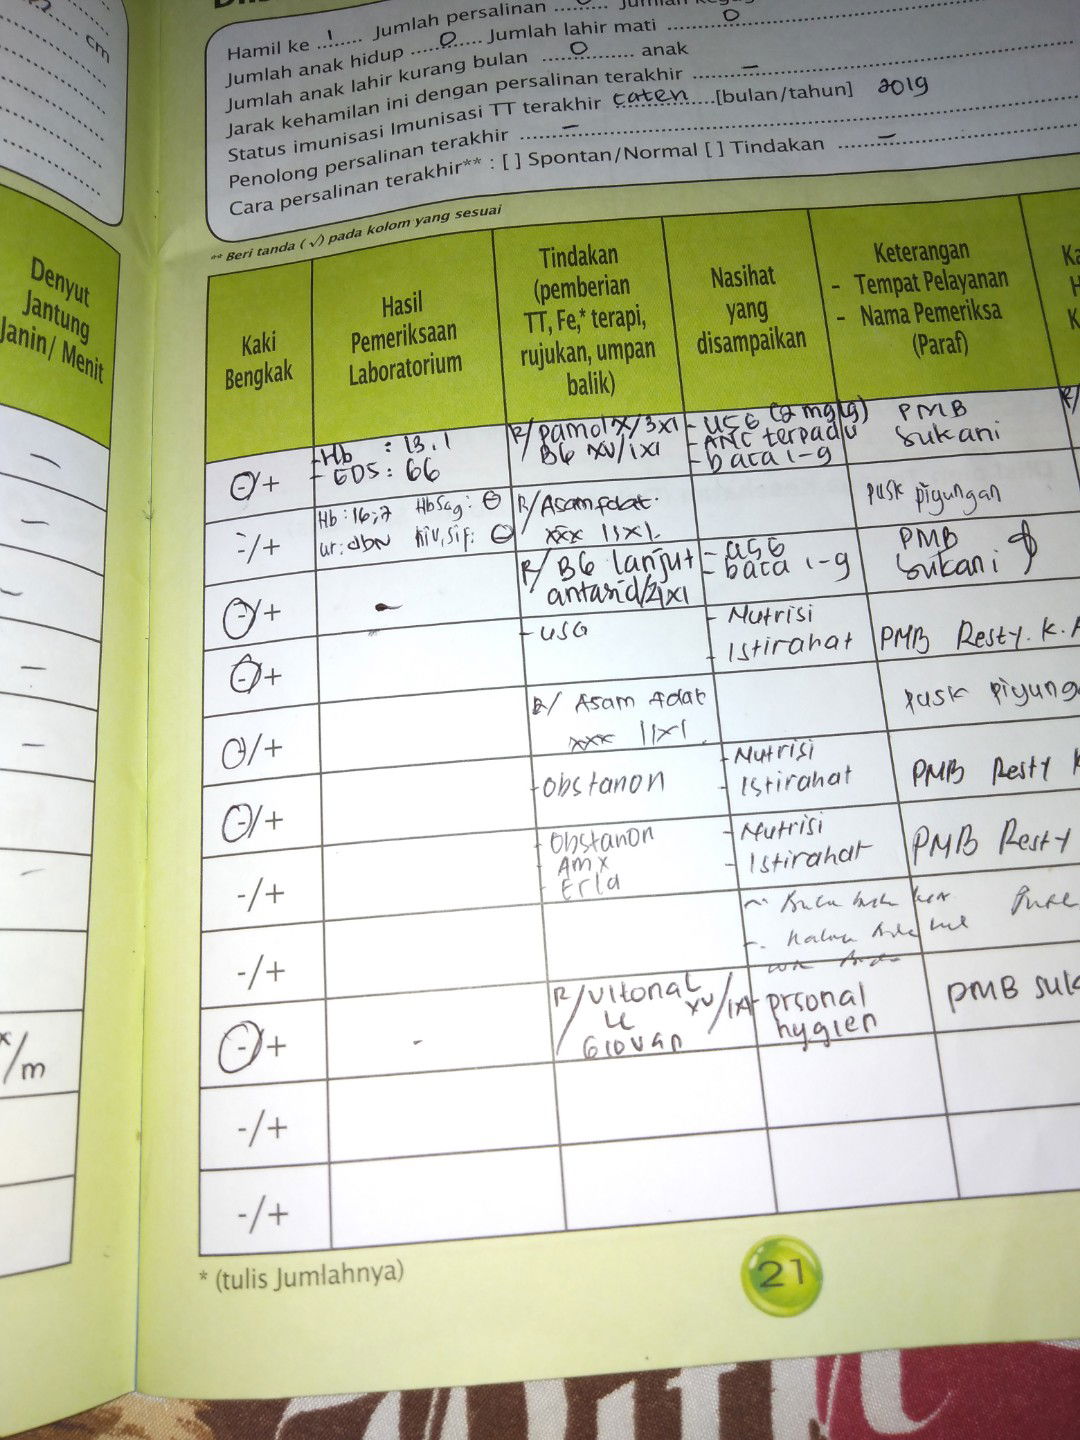 cm
Hamil ke 1 Jumlah persalinan
Jumlah anak hidup 0 Jumlah lahir mati 0
Jumlah anak lahir kurang bulan 0 anak
Jarak kehamilan ini dengan persalinan terakhir –
Status imunisasi Imunisasi TT terakhir caten [bulan/tahun] 2019
Penolong persalinan terakhir –
Cara persalinan terakhir** : [ ] Spontan/Normal [ ] Tindakan –
** Beri tanda (√) pada kolom yang sesuai
Denyut
Jantung
Janin/ Menit
Kaki
Bengkak
Hasil
Pemeriksaan
Laboratorium
Tindakan
(pemberian
TT, Fe,* terapi,
rujukan, umpan
balik)
Nasihat
yang
disampaikan
Keterangan
- Tempat Pelayanan
- Nama Pemeriksa
(Paraf)
-/+
- Hb : 13,1
- GDS : 66
R/ pamol X/3x1
B6 XV/1x1
- USG (2 mg lg)
- ANC terpadu
- baca 1-9
PMB
Sukani
-/+
Hb : 16,7 HbSag : ⊖
ur : dbN hiv, sif : ⊖
R/ Asam folat
xxx 11x1
pusk piyungan
-/+
-
R/ B6 lanjut
antasid/21x1
- USG
- baca 1-9
PMB
Sukani
-/+
- USG
- Nutrisi
- Istirahat
PMB Resty. K.A
-/+
R/ Asam Folat
xxx 11x1
pusk piyung
-/+
- Obstanon
- Nutrisi
- Istirahat
PMB Resty K
-/+
- Obstanon
- Amx
- Erla
- Nutrisi
- Istirahat
PMB Resty
-/+
-/+
-
R/ Vitonal XV/1x1
Giovan
- prsonal
hygien
PMB Suk
-/+
-/+
/m
* (tulis Jumlahnya)
21